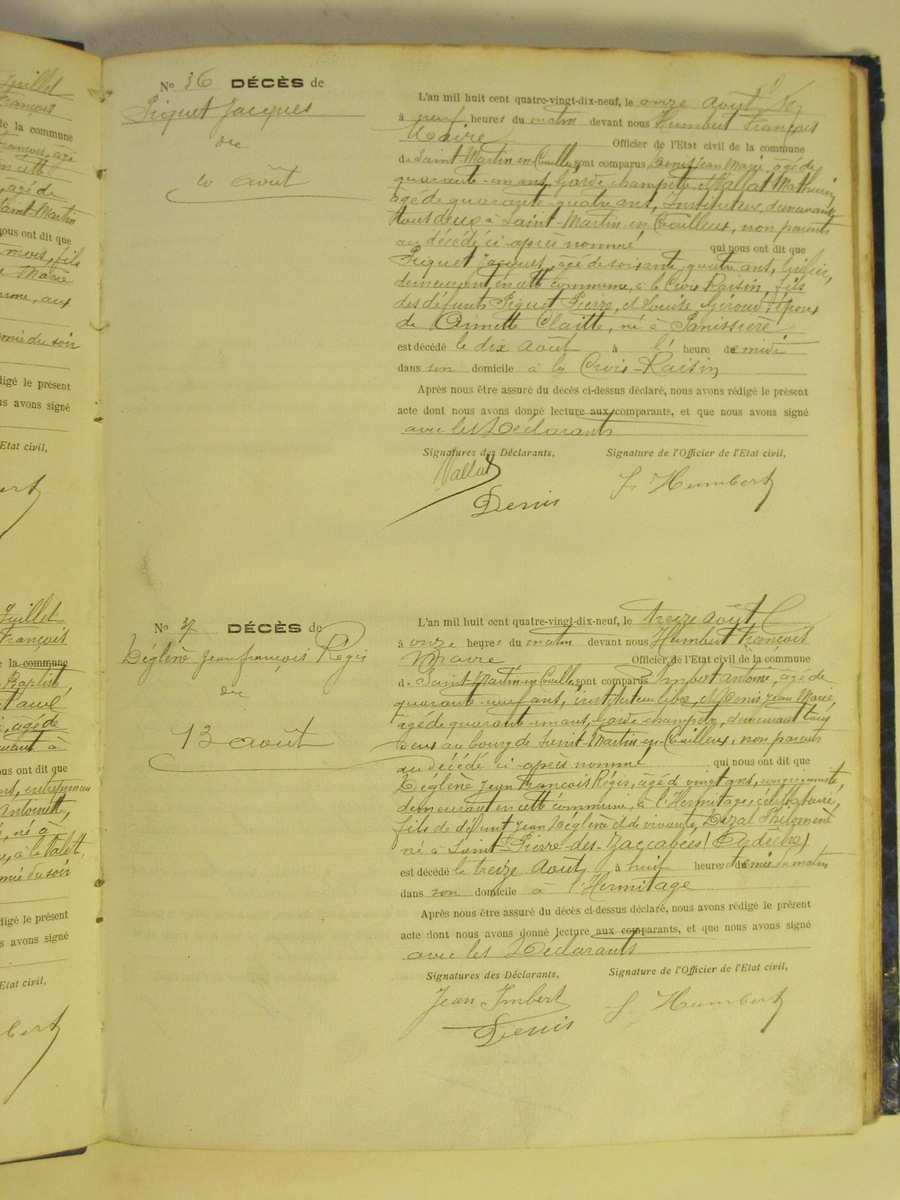 Juillet
François
de la commune
François, âgé
âgé de
Saint-Martin
nous ont dit que
mois, fils
Marie
aux
du soir
rédigé le présent
nous avons signé
l'Etat civil,
No 36 DÉCÈS de
Piguet Jacques
du
10 août
L'an mil huit cent quatre-vingt-dix-neuf, le onze Août
à neuf heures du matin devant nous Humbert François
Maire Officier de l'Etat civil de la commune
de Saint-Martin-en-Coailleux sont comparus Denis Jean Marie, âgé de
quarante-un ans, Garde champêtre et Vallat Mathurin,
âgé de quarante quatre ans, Instituteur, demeurant
tous deux à Saint-Martin-en-Coailleux, non parents
au décédé ci-après nommé qui nous ont dit que
Piguet Jacques, âgé de soixante quatre ans,
demeurant en cette commune, à la Croix Raisin, fils
des défunts Piguet Pierre, et Louise Géroud, époux
de Annette Claitte, né à
est décédé le dix Août à l' heure de midi
dans son domicile à la Croix-Raisin
Après nous être assuré du décès ci-dessus déclaré, nous avons rédigé le présent
acte dont nous avons donné lecture aux comparants, et que nous avons signé
avec les Déclarants
Signatures des Déclarants, Signature de l'Officier de l'Etat civil,
Vallat
Denis F. Humbert
Juillet
François
de la commune
Baptiste
âgé de
à
nous ont dit que
entrepreneur
Antoinette,
né à
à la Valette,
du soir
rédigé le présent
nous avons signé
l'Etat civil,
No 37 DÉCÈS de
Déglène Jean françois Régis
du
13 août
L'an mil huit cent quatre-vingt-dix-neuf, le treize août
à onze heures du matin devant nous Humbert François
Maire Officier de l'Etat civil de la commune
de Saint-Martin-en-Coailleux sont comparus Imbert Antoine, âgé de
quarante-neuf ans, instituteur libre, et Denis Jean Marie,
âgé de quarante-un ans, Garde champêtre, demeurant tous
deux au bourg de Saint-Martin-en-Coailleux, non parents
au décédé ci-après nommé qui nous ont dit que
Déglène Jean François Régis, âgé de vingt ans, congréganiste,
demeurant en cette commune, à l'Hermitage, célibataire,
fils de défunt Jean Déglène et de vivante, Dizal Philomène
né à Saint-Pierre-des-Maccabées (Ardèche)
est décédé le treize Août à huit heures du matin
dans son domicile à l'Hermitage
Après nous être assuré du décès ci-dessus déclaré, nous avons rédigé le présent
acte dont nous avons donné lecture aux comparants, et que nous avons signé
avec les Déclarants
Signatures des Déclarants, Signature de l'Officier de l'Etat civil,
Jean Imbert F. Humbert
Denis